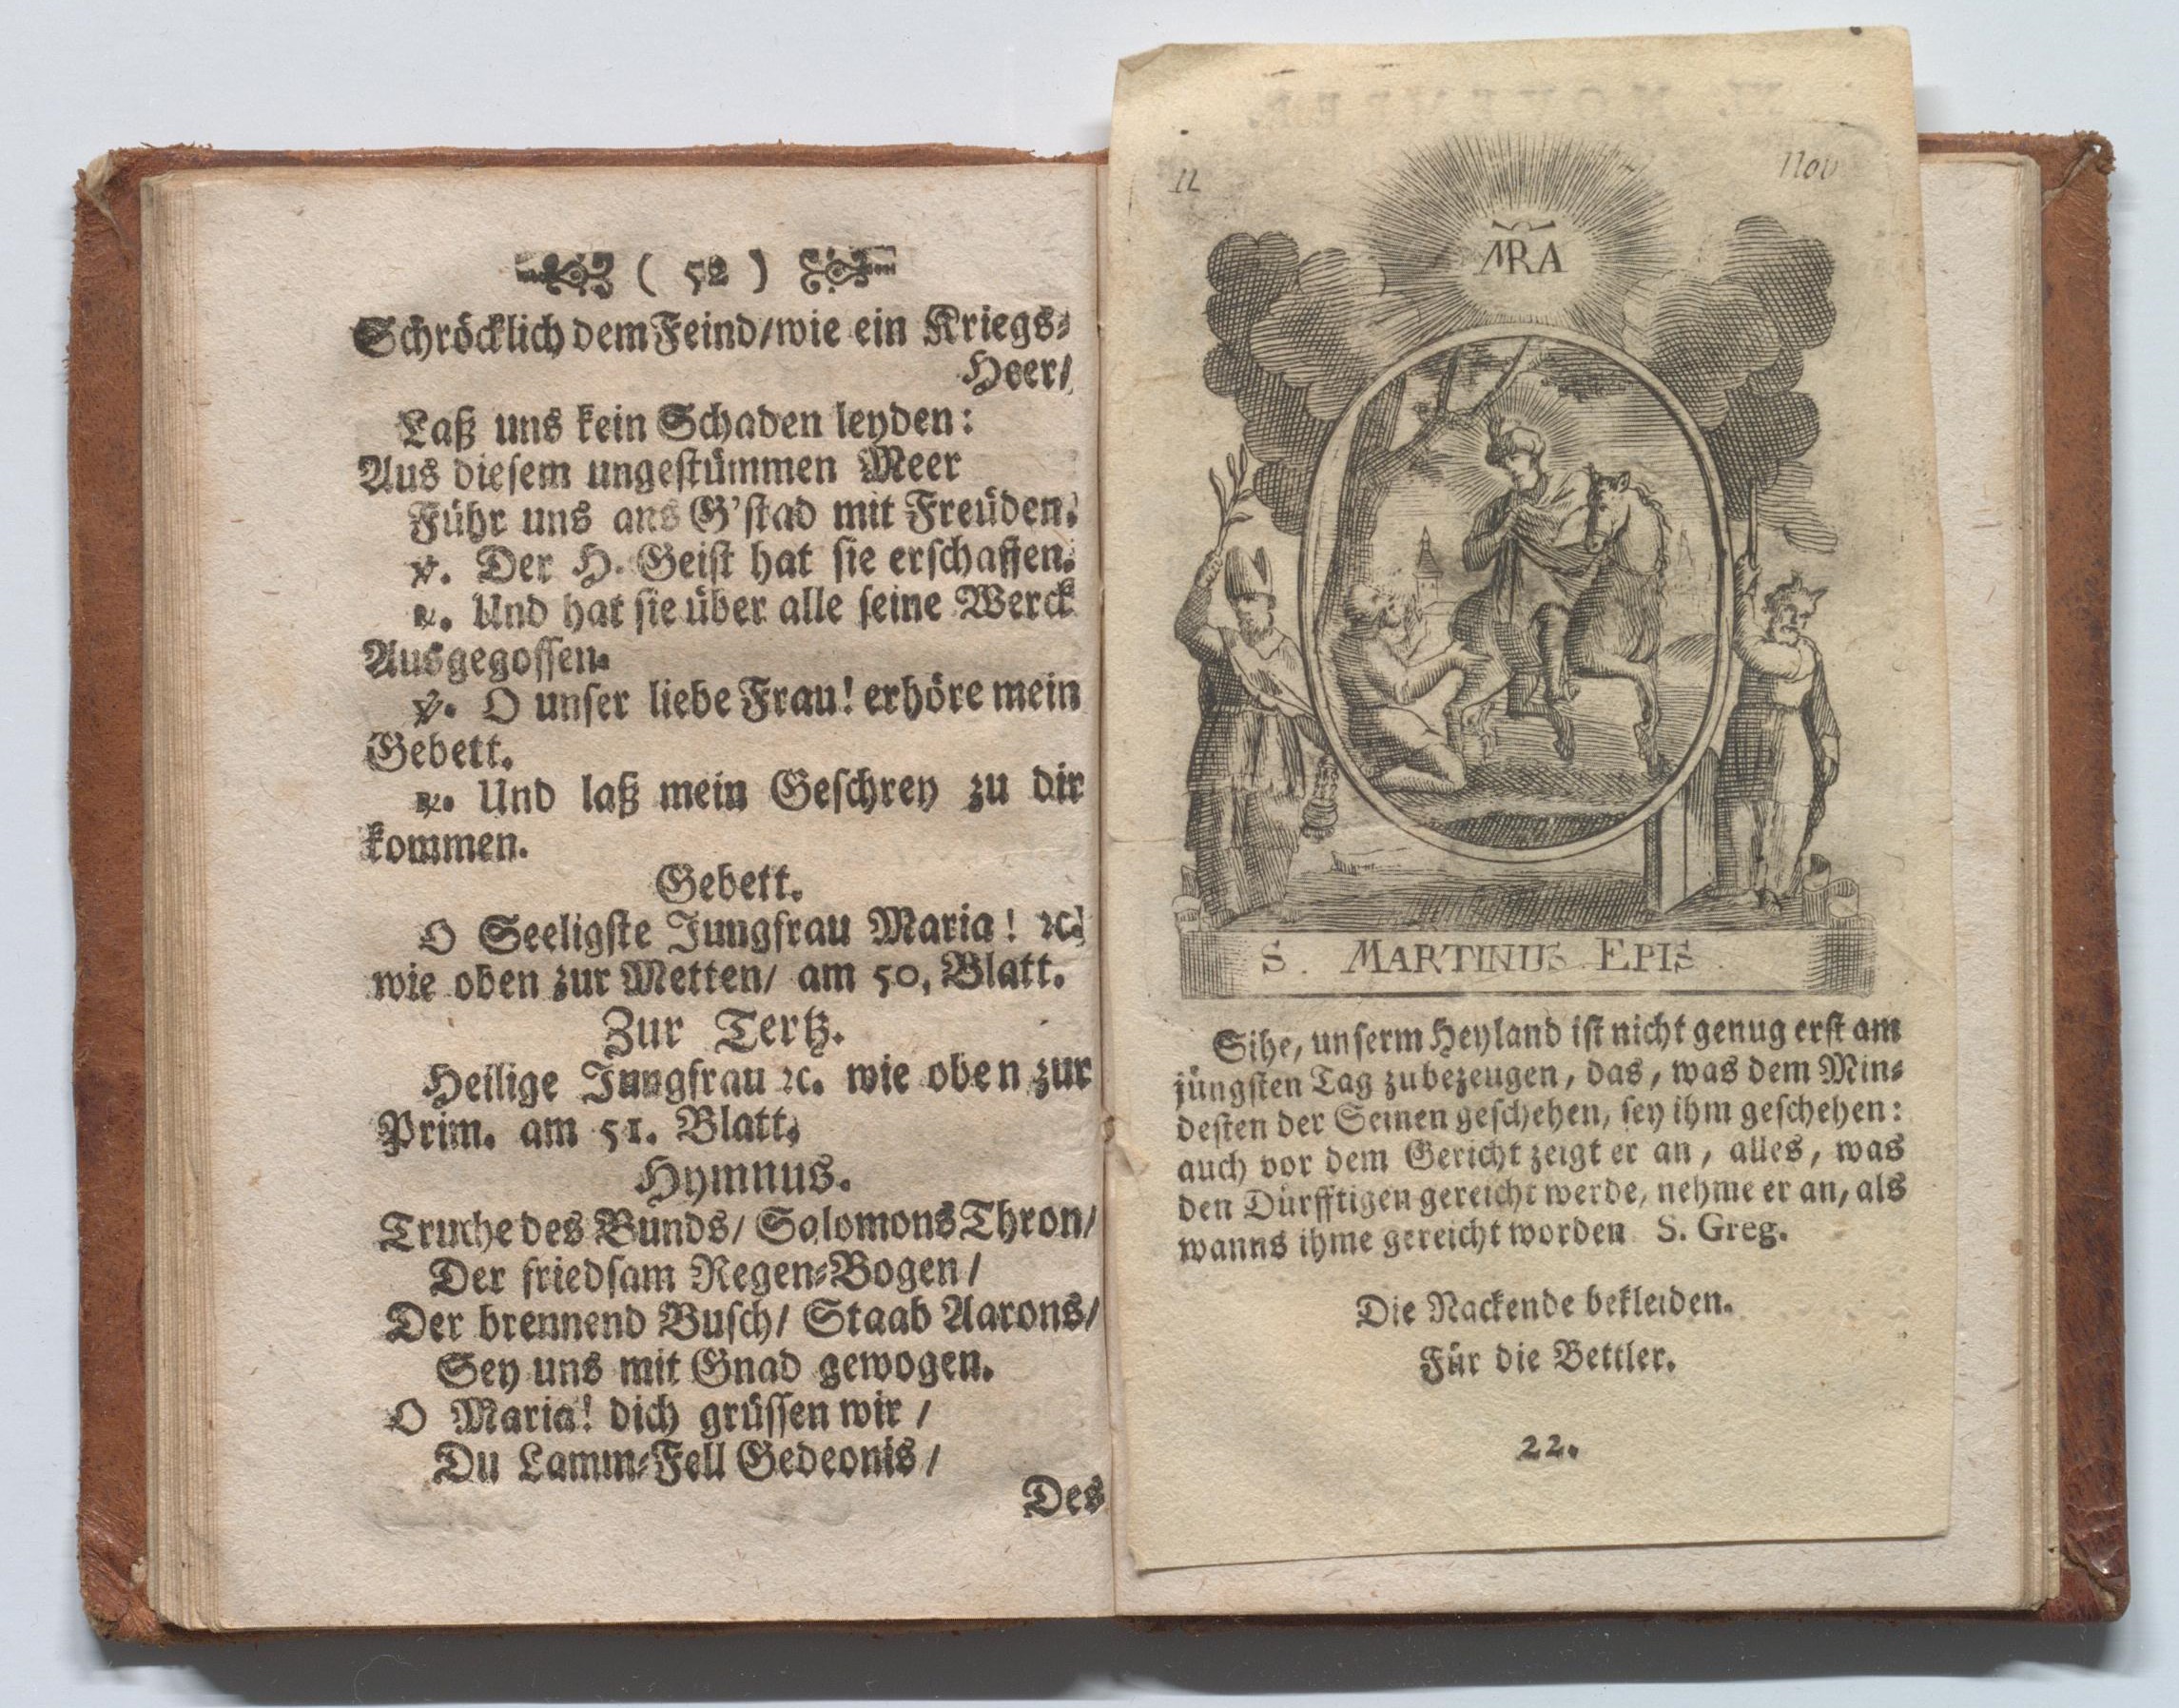 ( 52 )
Schröcklich dem Feind/wie ein Kriegs-
Heer/
Laß uns kein Schaden leyden:
Aus diesem ungestümmen Meer
Führ uns ans G'stad mit Freuden.
℣. Der H. Geist hat sie erschaffen.
℟. Und hat sie über alle seine Werck
Ausgegossen.
℣. O unser liebe Frau! erhöre mein
Gebett.
℟. Und laß mein Geschrey zu dir
kommen.
Gebett.
O Seeligste Jungfrau Maria! ꝛc.
wie oben zur Metten/ am 50. Blatt.
Zur Tertz.
Heilige Jungfrau ꝛc. wie oben zur
Prim. am 51. Blatt.
Hymnus.
Truche des Bunds/ Salomons Thron/
Der friedsam Regen-Bogen/
Der brennend Busch/ Staab Aarons/
Sey uns mit Gnad gewogen.
O Maria! dich grüssen wir /
Du Lamm-Fell Gedeonis /
Des
11 Nov
MRA
S. MARTINUS. EPIS.
Sihe, unserm Heyland ist nicht genug erst am
jüngsten Tag zubezeugen, das, was dem Min-
desten der Seinen geschehen, sey ihm geschehen:
auch vor dem Gericht zeigt er an, alles, was
den Dürfftigen gereicht werde, nehme er an, als
wanns ihme gereicht worden S. Greg.
Die Nackende bekleiden.
Für die Bettler.
22.